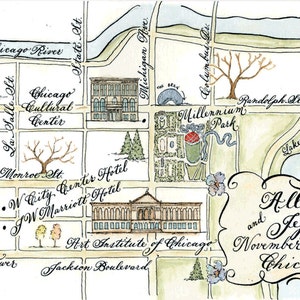 Chicago River
State St.
Michigan Ave.
Columbus Dr.
La Salle St.
Chicago
Cultural
Center
THE BEAN
Millennium
Park
Randolph St.
Lake
Monroe St.
W City Center Hotel
JW Marriott Hotel
Art Institute of Chicago
Jackson Boulevard
and
November
Chic